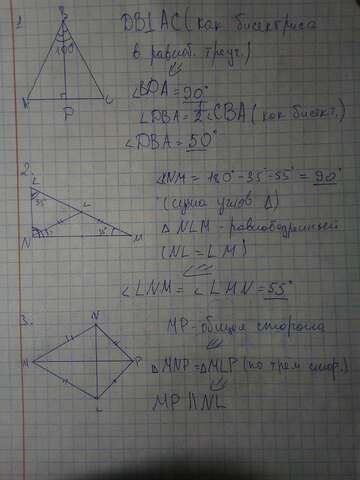 1
B
100°
A
C
D
DB⊥AC (как биссектриса
в равноб. треуг.)
∠BDA = 90°
∠DBA = ½ ∠CBA (как бисект.)
∠DBA = 50°
2.
L
35°
N
35°
M
180° - 35° - 55° = 90°
(сумма углов Δ)
Δ NLM - равнобедренный
(NL = LM)
∠LNM = ∠LMN = 55°
3.
N
M
P
L
MP - общая сторона
ΔMNP = ΔMLP (по трём стор.)
MP || NL